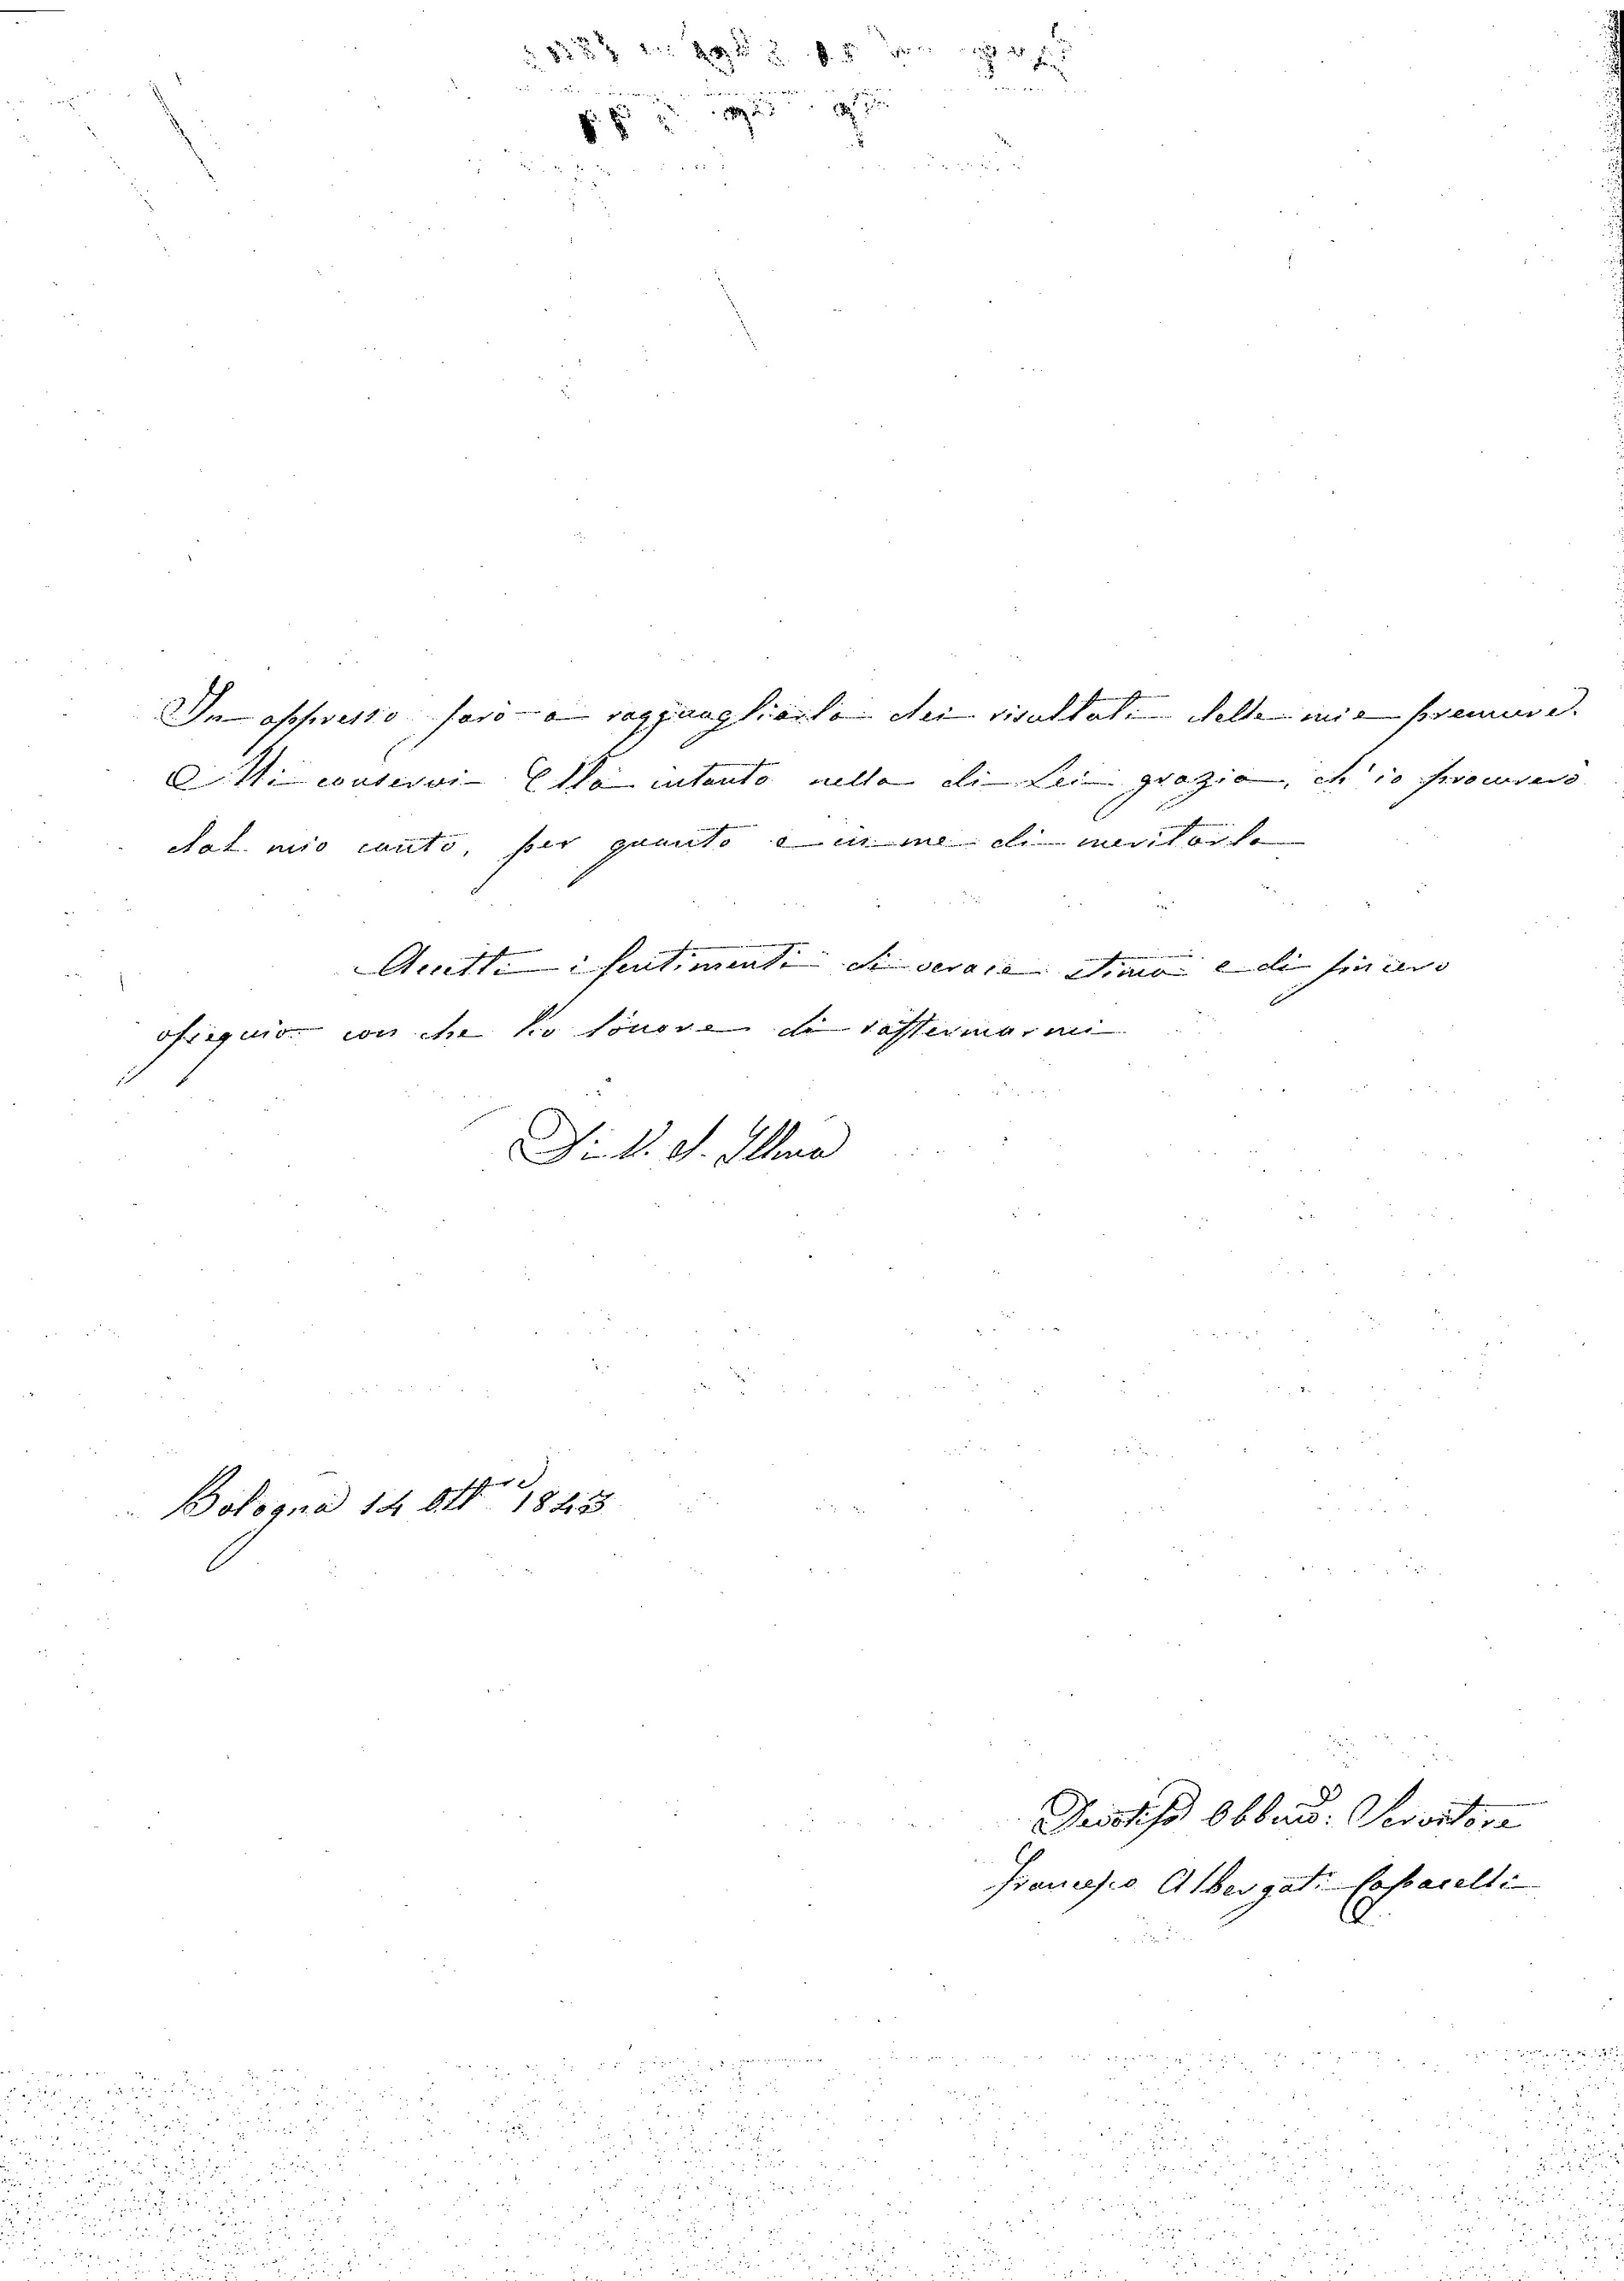 In appresso sarò a ragguagliarla dei risultati delle mie premure.
Mi conservi Ella intanto nella di Lei grazia, ch'io procurerò
dal mio canto, per quanto è in me di meritarla
Accetti i sentimenti di verace stima e di sincero
ossequio con che ho l'onore di raffermarmi
Di V. S. Illma
Bologna 14 Ottre 1843
Devotisso Obbmo: Servitore
Francesco Albergati Capacelli